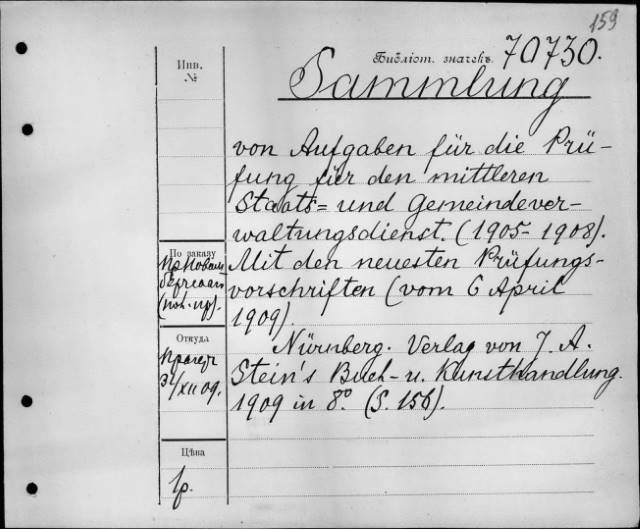 159
Библіот. значекъ 70730.
Инв.
№
Sammlung
von Aufgaben für die Prü-
fung für den mittleren
Staats= und Gemeindever-
waltungsdienst. (1905-1908).
Mit den neuesten Prüfungs-
vorschriften (vom 6 April
1909).
Nürnberg. Verlag von J. A.
Stein's Buch- u. Kunsthandlung.
1909 in 8° (S. 156).
По заказу
Откуда
/XII 09.
Цѣна
1р.